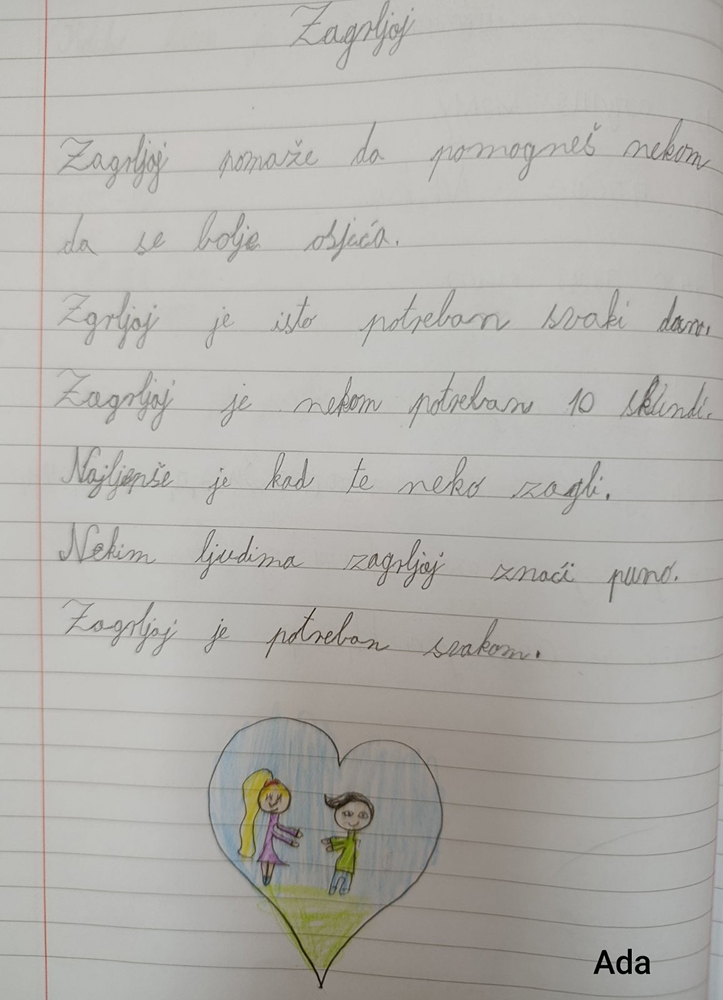 Zagrljaj
Zagrljaj pomaže da pomogneš nekom
da se bolje osjeća.
Zgrljaj je isto potreban svaki dan.
Zagrljaj je nekom potreban 10 skundi.
Najljepše je kad te neko zagli.
Nekim ljudima zagrljaj znači puno.
Zagrljaj je potreban svakom.
Ada